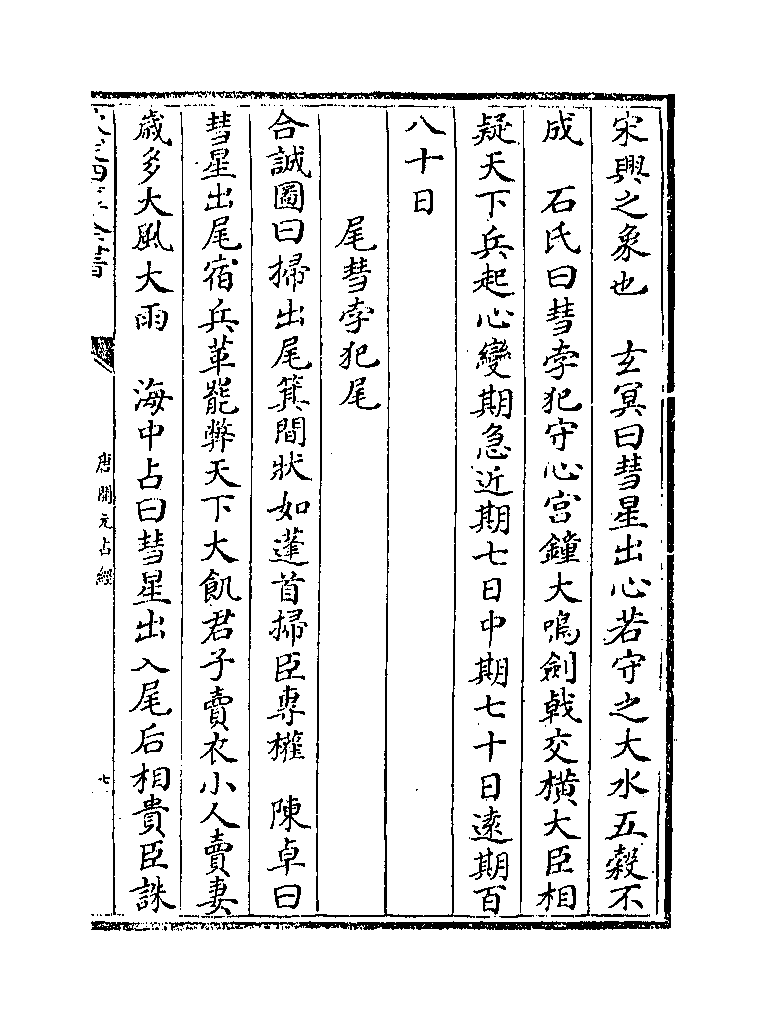 宋興之象也　玄冥曰彗星出心若守之大水五穀不
成　石氏曰彗孛犯守心宫鐘大鳴劍戟交橫大臣相
疑天下兵起心變期急近期七日中期七十日逺期百
八十日
尾彗孛犯尾
合誠圖曰掃出尾箕間狀如蓬首掃臣專權　陳卓曰
彗星出尾宿兵革罷弊天下大飢君子賣衣小人賣妻
歲多大風大雨　海中占曰彗星出入尾后相貴臣誅
全書
唐開元占經
七